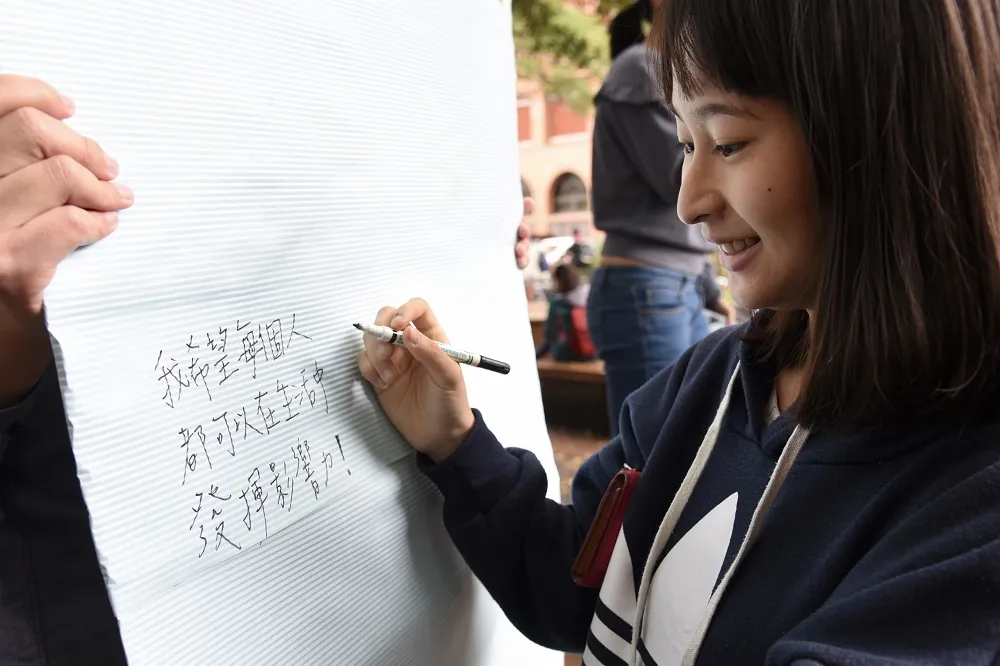 我希望每個人
都可以在生活中
發揮影響力!